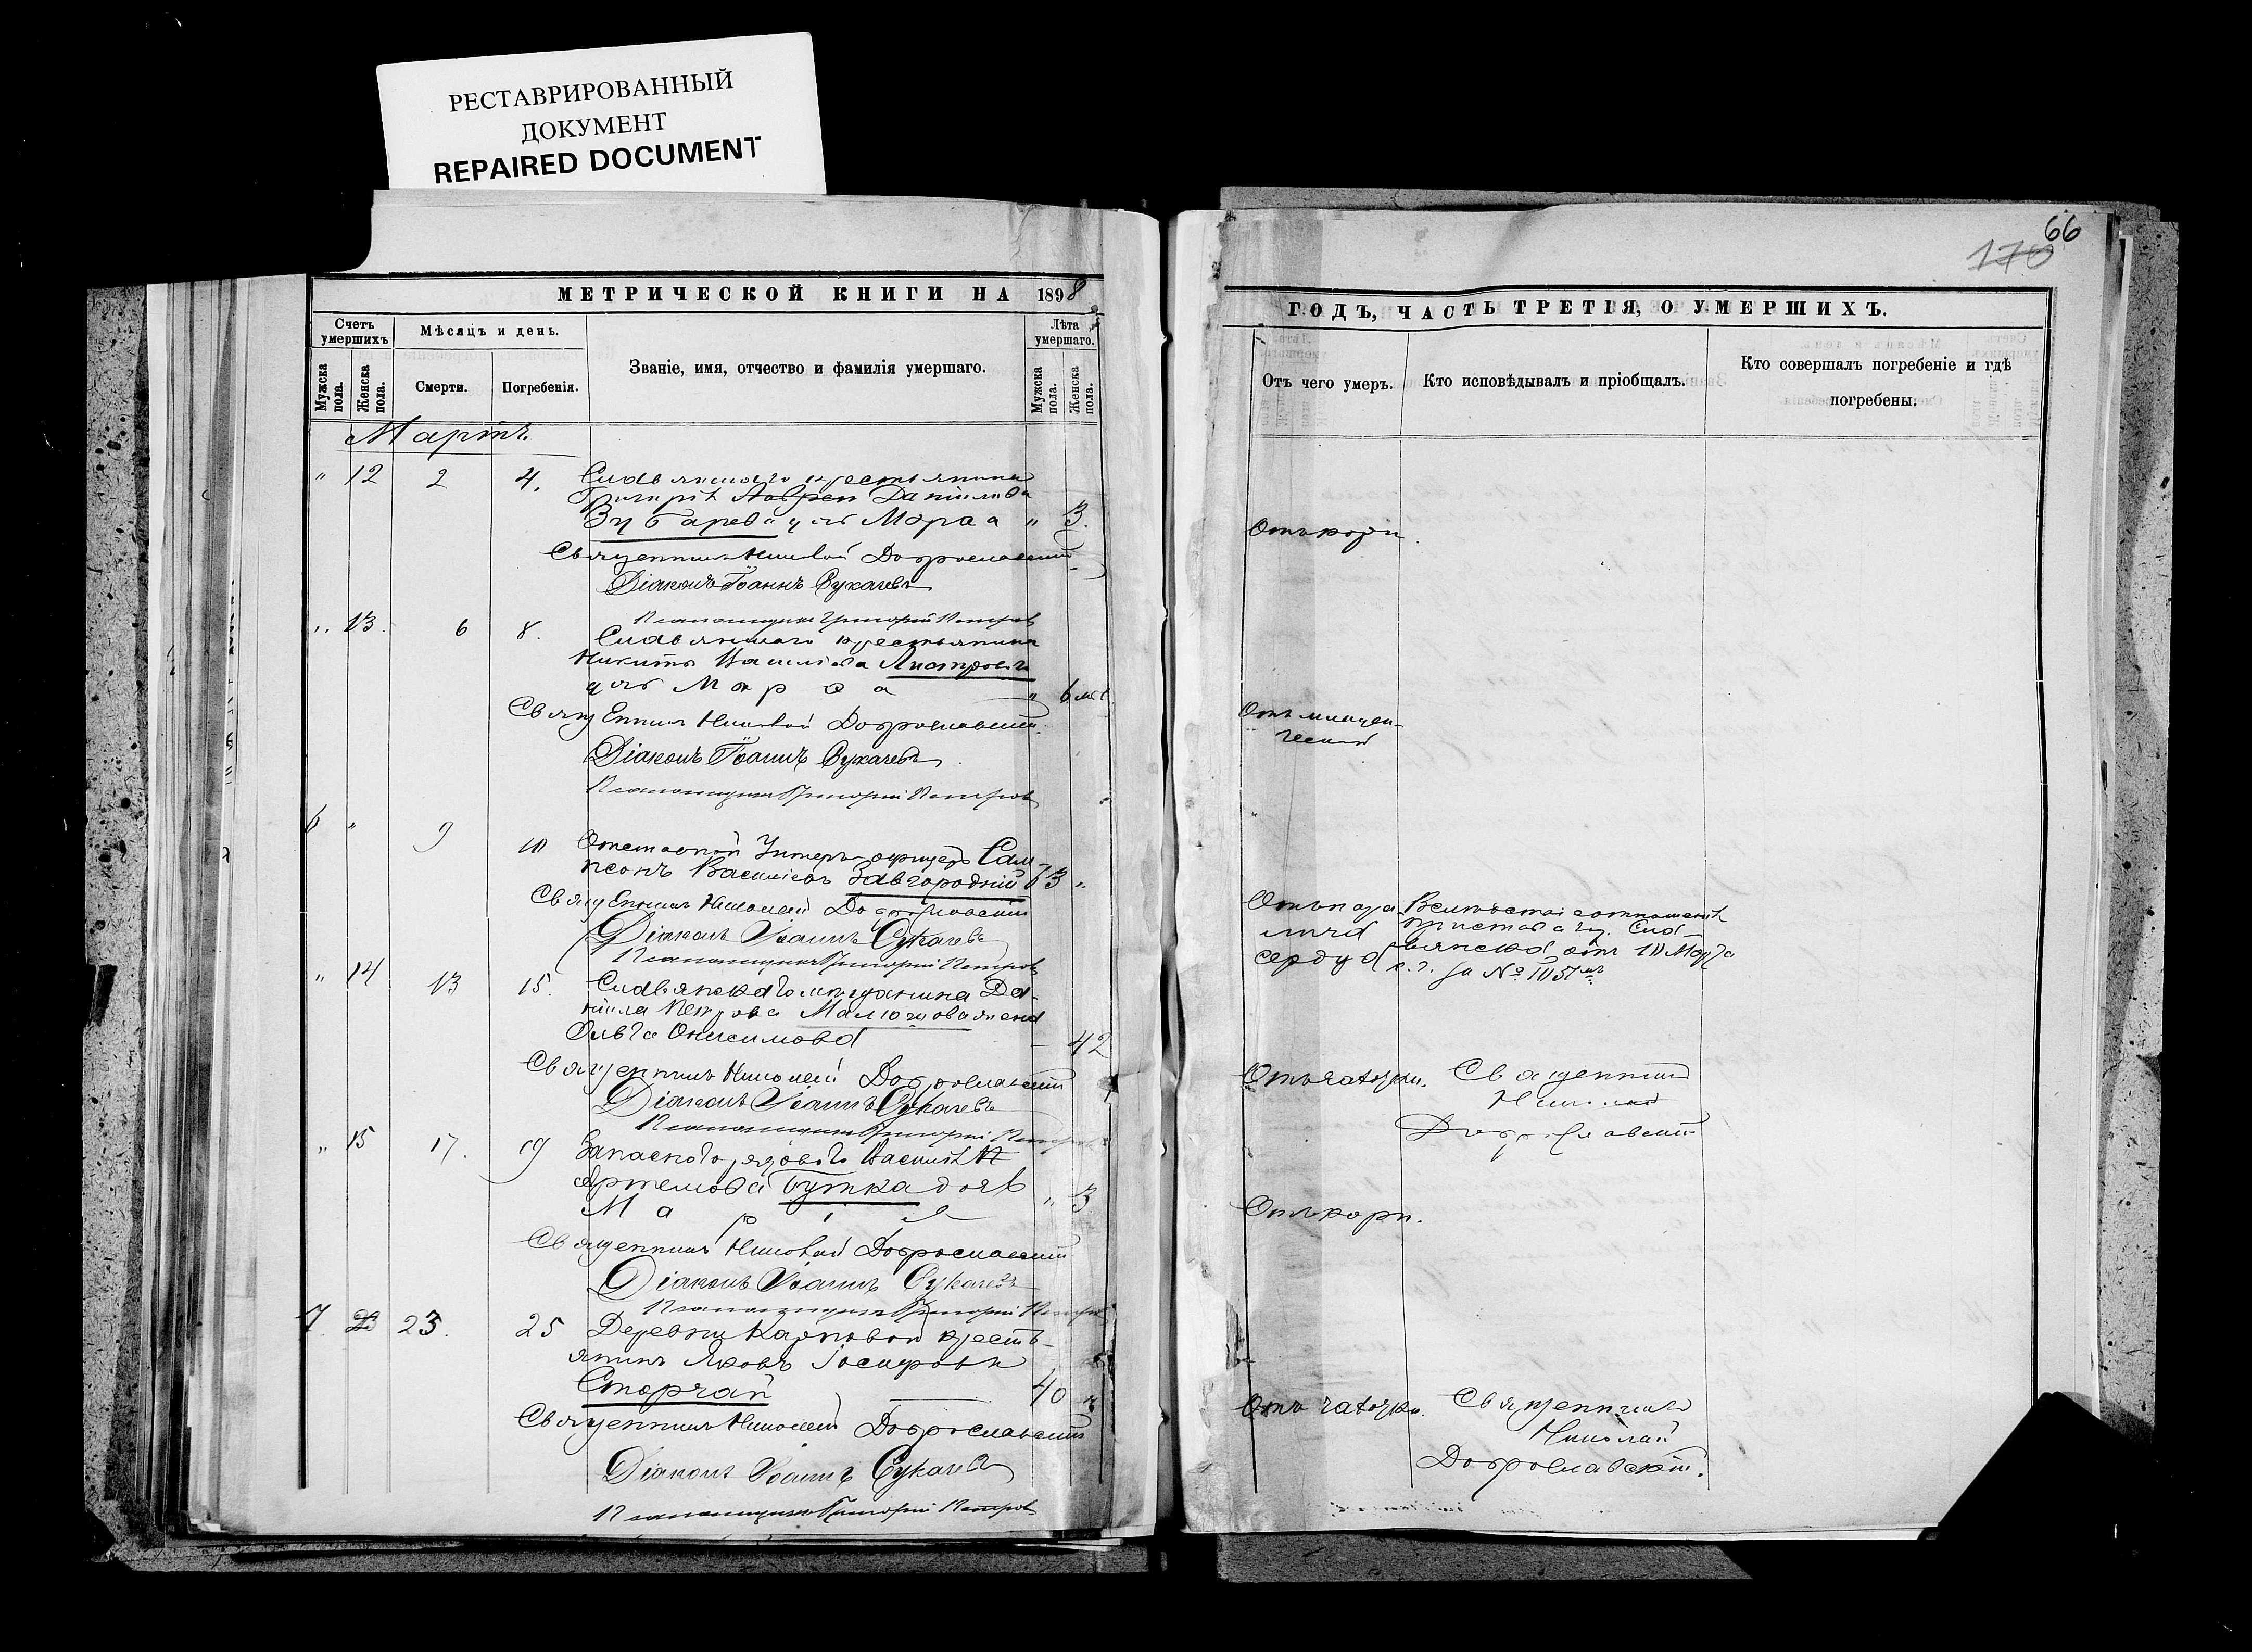 РЕСТАВРИРОВАННЫЙ
ДОКУМЕНТ
REPAIRED DOCUMENT
МЕТРИЧЕСКОЙ КНИГИ НА 1898
Счетъ умершихъ
Мѣсяцъ и день.
Званіе, имя, отчество и фамилія умершаго.
Лѣта умершаго.
Мужска пола.
Женска пола.
Смерти.
Погребенія.
Мужска пола.
Женска пола.
Мартъ
" 12 2 4. Славянскаго крестьянина
Григорія Данилова
Зубарева дочь Марѳа " 3.
Священникъ Николай Доброславскій
Діаконъ Іоаннъ Сукачевъ
Псаломщикъ Григорій Петровъ
" 13. 6 8. Славянскаго крестьянина
Никиты Василіева
дочь Марѳа " 6 м
Священникъ Николай Доброславскій
Діаконъ Іоаннъ Сукачевъ
Псаломщикъ Григорій Петровъ
6 " 9 10 Отставной Унтеръ-офицеръ Сам-
псонъ Василіевъ Завгородній 63 "
Священникъ Николай Доброславскій
Діаконъ Іоаннъ Сукачевъ
Псаломщикъ Григорій Петровъ
" 14 13 15. Славянскаго мѣщанина Да-
ніила Петрова жена
Ольга Онисимова 42
Священникъ Николай Доброславскій
Діаконъ Іоаннъ Сукачевъ
Псаломщикъ Григорій Петровъ
" 15 17. 19 Запаснаго рядового Василія
Артемова Бутка дочь
Марія " 3
Священникъ Николай Доброславскій
Діаконъ Іоаннъ Сукачевъ
Псаломщикъ Григорій Петровъ
7. 23. 25 Деревни Карповой кресть-
янинъ Яковъ Іосифовъ
Сторчай 40 "
Священникъ Николай Доброславскій
Діаконъ Іоаннъ Сукачевъ
Псаломщикъ Григорій Петровъ
66
170
ГОДЪ, ЧАСТЬ ТРЕТІЯ, О УМЕРШИХЪ.
Отъ чего умеръ.
Кто исповѣдывалъ и пріобщалъ.
Кто совершалъ погребеніе и гдѣ
погребены.
Отъ кори.
Отъ младен-
ческой
Отъ пара-
лича
сердца
Вслѣдствіе отношенія
пристава гор. Сла-
вянска отъ 10 Марта
с. г. за № 1051мъ
Отъ чахотки. Священникъ
Николай
Доброславскій
Отъ кори.
Отъ чахотки. Священникъ
Николай
Доброславскій.